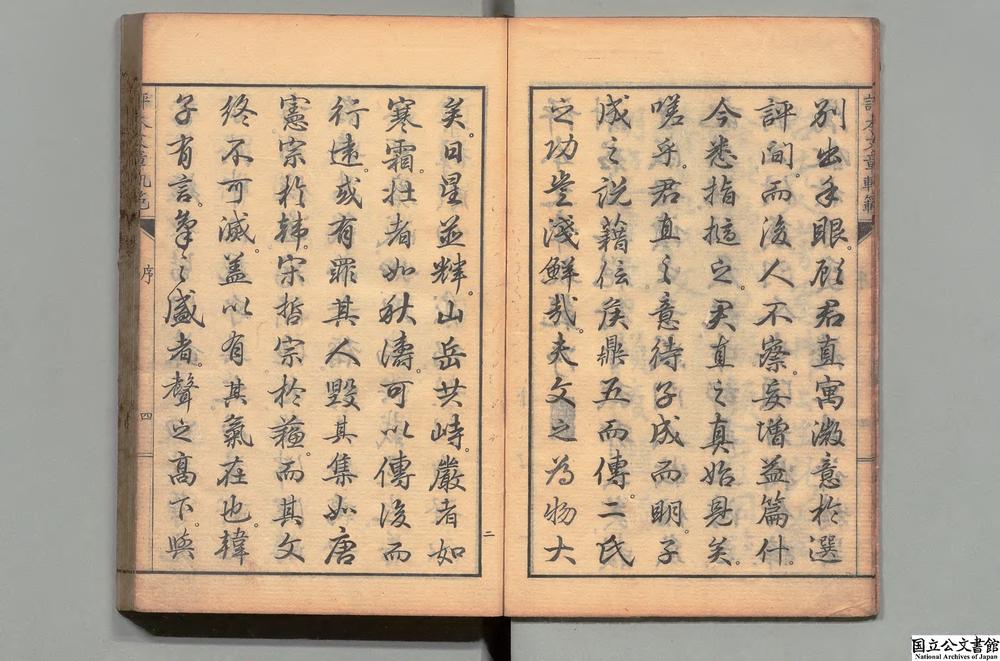 評本文章軌範
別出手眼。顧君直寓微意於選
評間。而後人不察。妄增益篇什。
今悉指擿之。君直之真始見矣。
嗟乎。君直之意待子成而明。子
成之說藉侯鼎五而傳。二氏
之功豈淺鮮哉。夫文之為物大
二
矣。日星並輝。山岳共峙。嚴者如
寒霜。壯者如秋濤。可以傳後而
行遠。或有罪其人毀其集如唐
憲宗於韓宋哲宗於蘇。而其文
終不可滅。蓋以有其氣在也。韓
子有言。氣之盛者。聲之高下。與
評本文章軌範
序
四
国立公文書館
National Archives of Japan